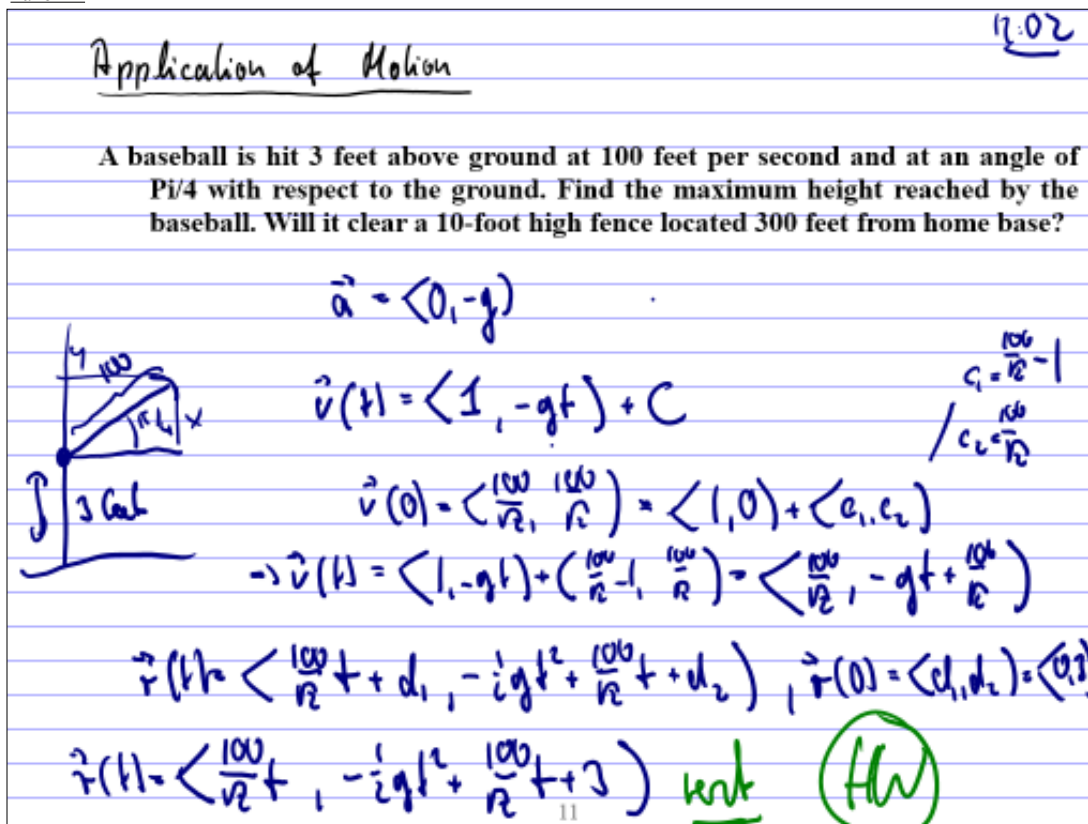 12:02
Application of Motion
A baseball is hit 3 feet above ground at 100 feet per second and at an angle of
Pi/4 with respect to the ground. Find the maximum height reached by the
baseball. Will it clear a 10-foot high fence located 300 feet from home base?
a⃗ = <0, -g>
y
100
π/4
x
3 feet
v⃗(t) = <1, -gt> + C
c₁ = 100/√2 - 1
/ c₂ = 100/√2
v⃗(0) = <100/√2, 100/√2> = <1, 0> + <c₁, c₂>
=> v⃗(t) = <1, -gt> + <100/√2 - 1, 100/√2> = <100/√2, -gt + 100/√2>
r⃗(t) = <100/√2 t + d₁, -½gt² + 100/√2 t + d₂>, r⃗(0) = <d₁, d₂> = <0,3>
r⃗(t) = <100/√2 t, -½gt² + 100/√2 t + 3> rest HW
11